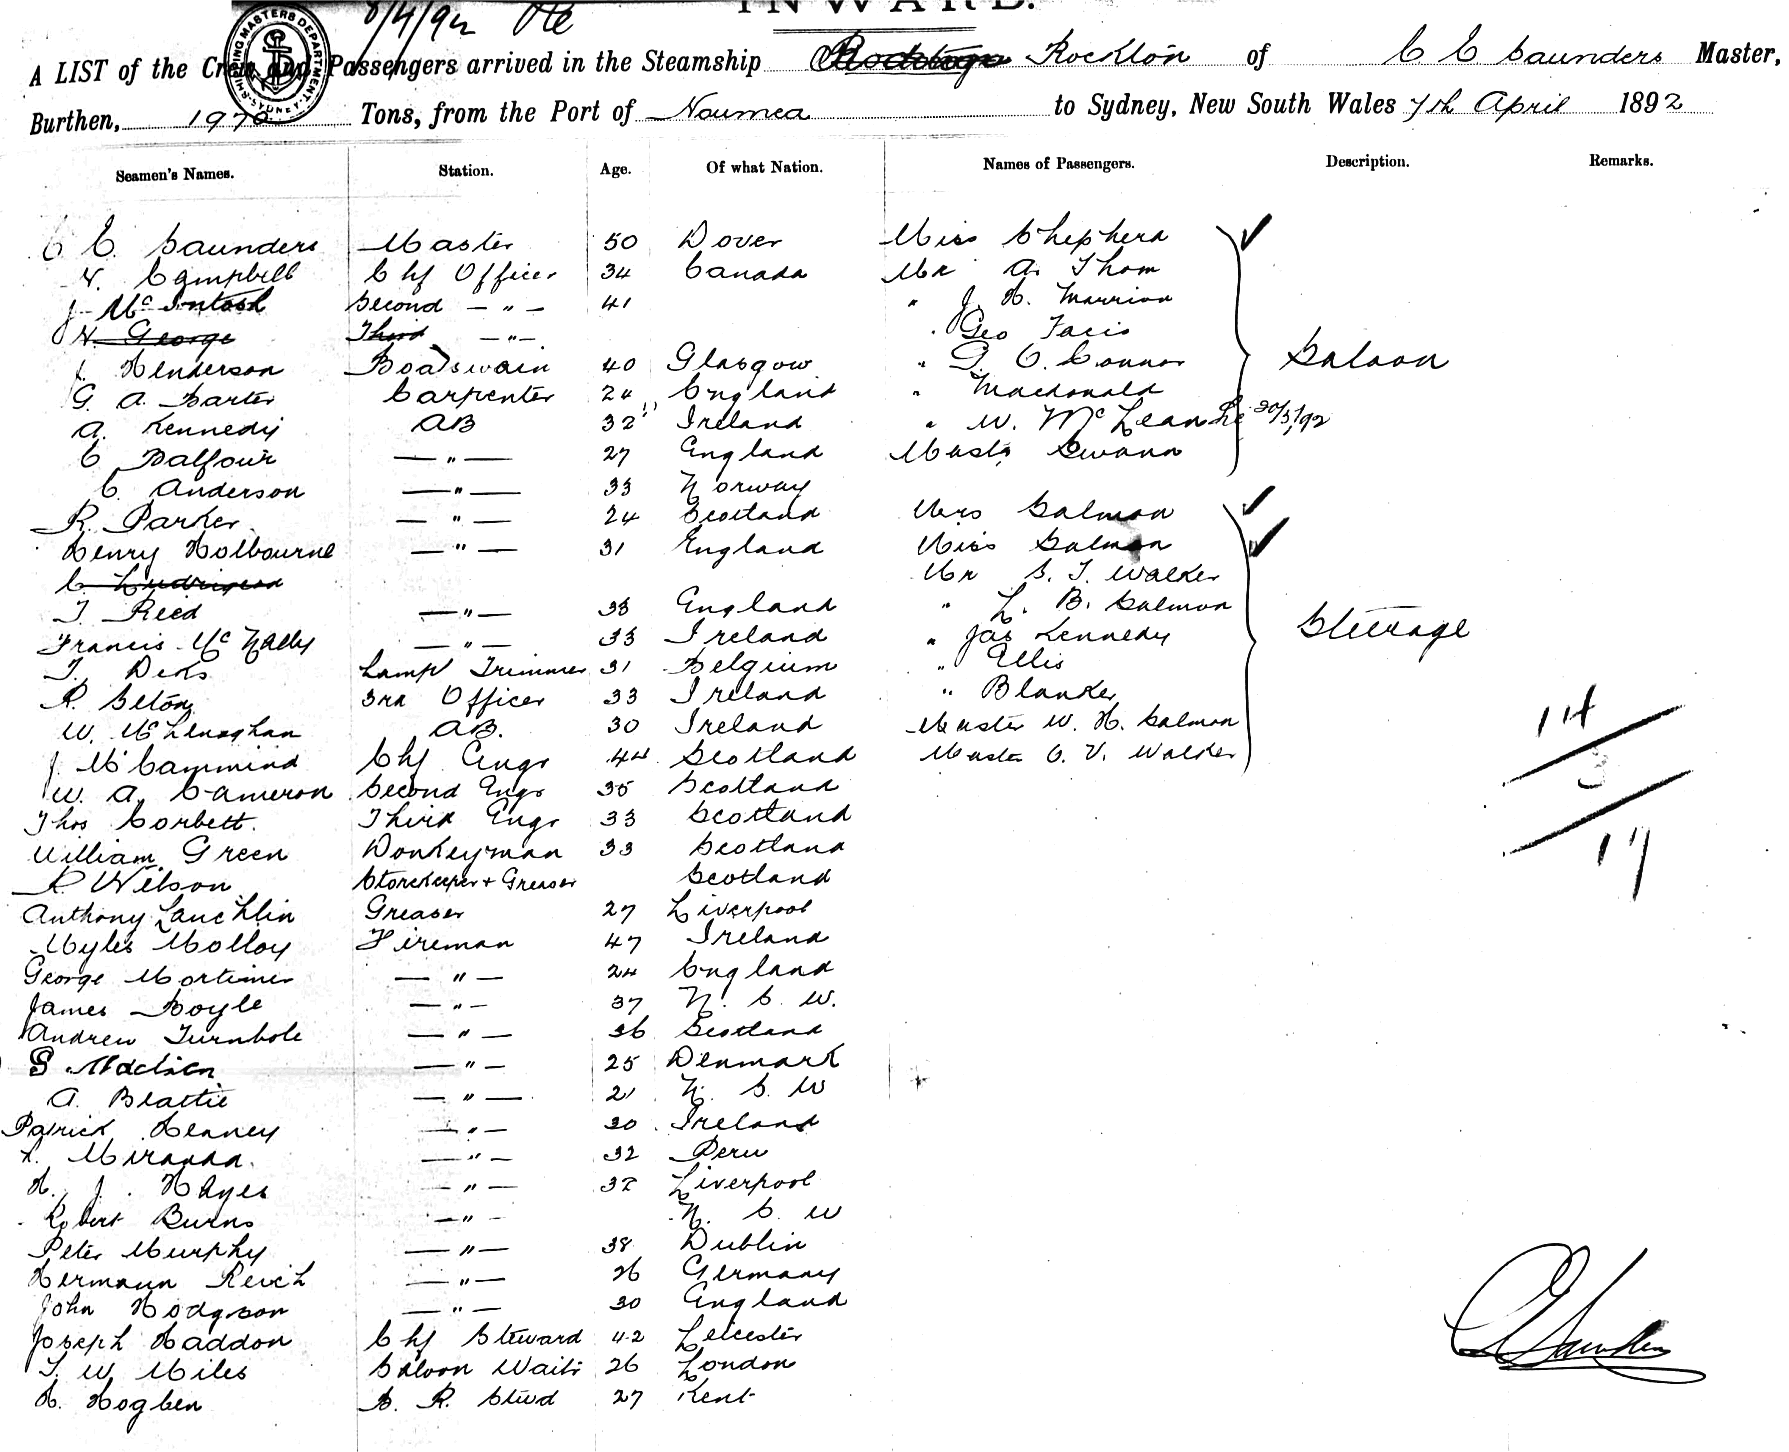 INWARD.
8/4/92
SHIPPING MASTERS DEPARTMENT SYDNEY
A LIST of the Crew and Passengers arrived in the Steamship Rockton of C C Saunders Master,
Burthen, 1970 Tons, from the Port of Noumea to Sydney, New South Wales 7th April 1892
Seamen's Names. Station. Age. Of what Nation. Names of Passengers. Description. Remarks.
C C Saunders Master 50 Dover Miss Shepherd
N. Campbell Chf Officer 34 Canada Mr A. Thom
J McIntosh Second — " — 41 " J. H. Marrion
N. George Third — " — " Geo
J. Henderson Boatswain 40 Glasgow " G. O. Connor Saloon
G. A. Carter Carpenter 24 England " Macdonald
A. Kennedy AB 32 Ireland " W. McLean 30/3/92
C Balfour — " — 27 England Mastr Swann
C. Anderson — " — 33 Norway
R. Parker — " — 24 Scotland Mrs Salmon
Henry Holbourne — " — 31 England Miss Salmon
Mr S. T. Walker
T. Reed — " — 33 England " L. B. Salmon
Francis McNally — " — 33 Ireland " Jas Kennedy Steerage
T. Deks Lamp Trimmer 31 Belgium " Ellis
R. Seton 3rd Officer 33 Ireland " Blanker
W. McLenaghan AB. 30 Ireland Master W. H. Salmon
J. McCammind Chf Engr 44 Scotland Master C. V. Walker
W. A. Cameron Second Engr 35 Scotland
14
3
17
Thos Corbett. Third Engr 33 Scotland
William Green Donkeyman 33 Scotland
R Wilson Storekeeper + Greaser Scotland
Anthony Lauchlin Greaser 27 Liverpool
Myles Molloy Fireman 47 Ireland
George Mortimer — " — 24 England
James Boyle — " — 37 N. S. W.
Andrew Turnbole — " — 36 Scotland
G Madsen — " — 25 Denmark
A. Beattie — " — 21 N. S. W
Patrick Heaney — " — 30 Ireland
L. Miranda. — " — 32 Peru
H. J. Hayes — " — 32 Liverpool
Robert Burns — " — N. S. W
Peter Murphy — " — 38 Dublin
Hermann Reich — " — 26 Germany
John Hodgson — " — 30 England
Joseph Haddon Chf Steward 42 Leicester
T. W. Miles Saloon Waitr 26 London
H. Hogben S. R. Stwd 27 Kent
C Saunders